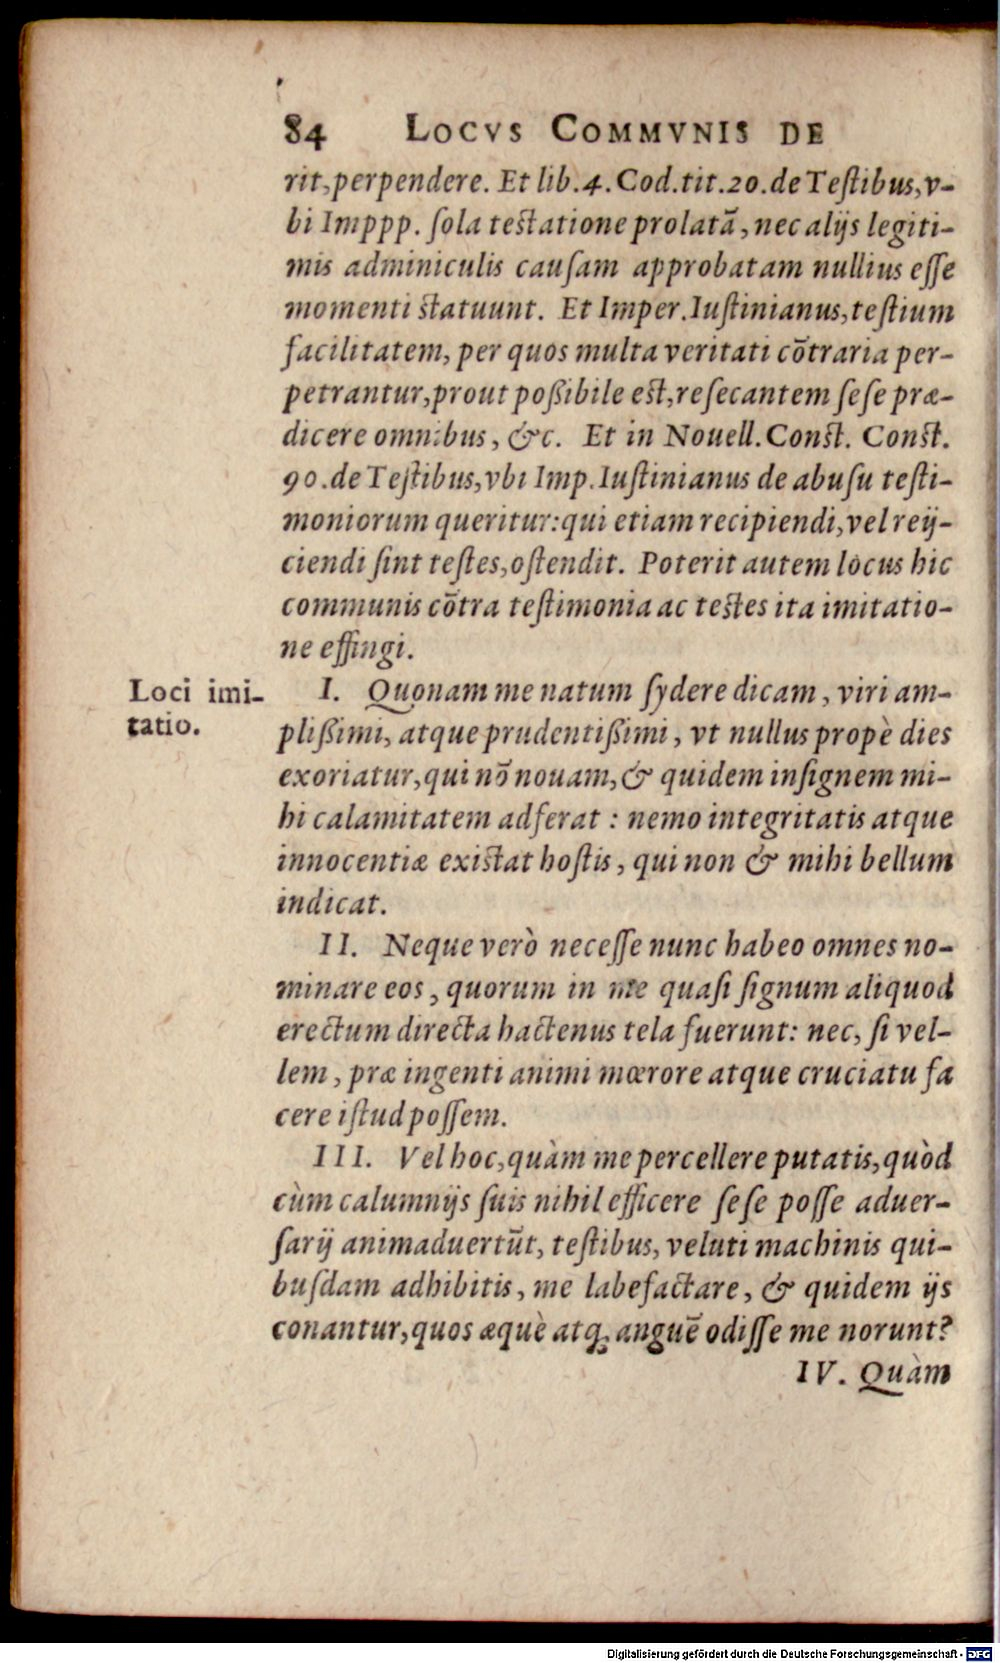 84 LOCVS COMMVNIS DE
rit, perpendere. Et lib. 4. Cod. tit. 20. de Teſtibus, v-
bi Imppp. ſola teſtatione prolatā, nec alijs legiti-
mis adminiculis cauſam approbatam nullius eſſe
momenti ſtatuunt. Et Imper. Iuſtinianus, teſtium
facilitatem, per quos multa veritati cōtraria per-
petrantur, prout poßibile eſt, reſecantem ſeſe præ-
dicere omnibus, &c. Et in Nouell. Conſt. Conſt.
90. de Teſtibus, vbi Imp. Iuſtinianus de abuſu teſti-
moniorum queritur: qui etiam recipiendi, vel reij-
ciendi ſint teſtes, oſtendit. Poterit autem locus hic
communis cōtra teſtimonia ac teſtes ita imitatio-
ne effingi.
Loci imi-
tatio.
I. Quonam me natum ſydere dicam, viri am-
plißimi, atque prudentißimi, vt nullus propè dies
exoriatur, qui nō nouam, & quidem inſignem mi-
hi calamitatem adferat : nemo integritatis atque
innocentiæ exiſtat hoſtis, qui non & mihi bellum
indicat.
II. Neque verò neceſſe nunc habeo omnes no-
minare eos, quorum in me quaſi ſignum aliquod
erectum directa hactenus tela fuerunt: nec, ſi vel-
lem, præ ingenti animi mœrore atque cruciatu fa
cere iſtud poſſem.
III. Vel hoc, quàm me percellere putatis, quòd
cùm calumnijs ſuis nihil efficere ſeſe poſſe aduer-
ſarij animaduertūt, teſtibus, veluti machinis qui-
buſdam adhibitis, me labefactare, & quidem ijs
conantur, quos æquè atq; anguē odiſſe me norunt?
IV. Quàm
Digitalisierung gefördert durch die Deutsche Forschungsgemeinschaft - DFG